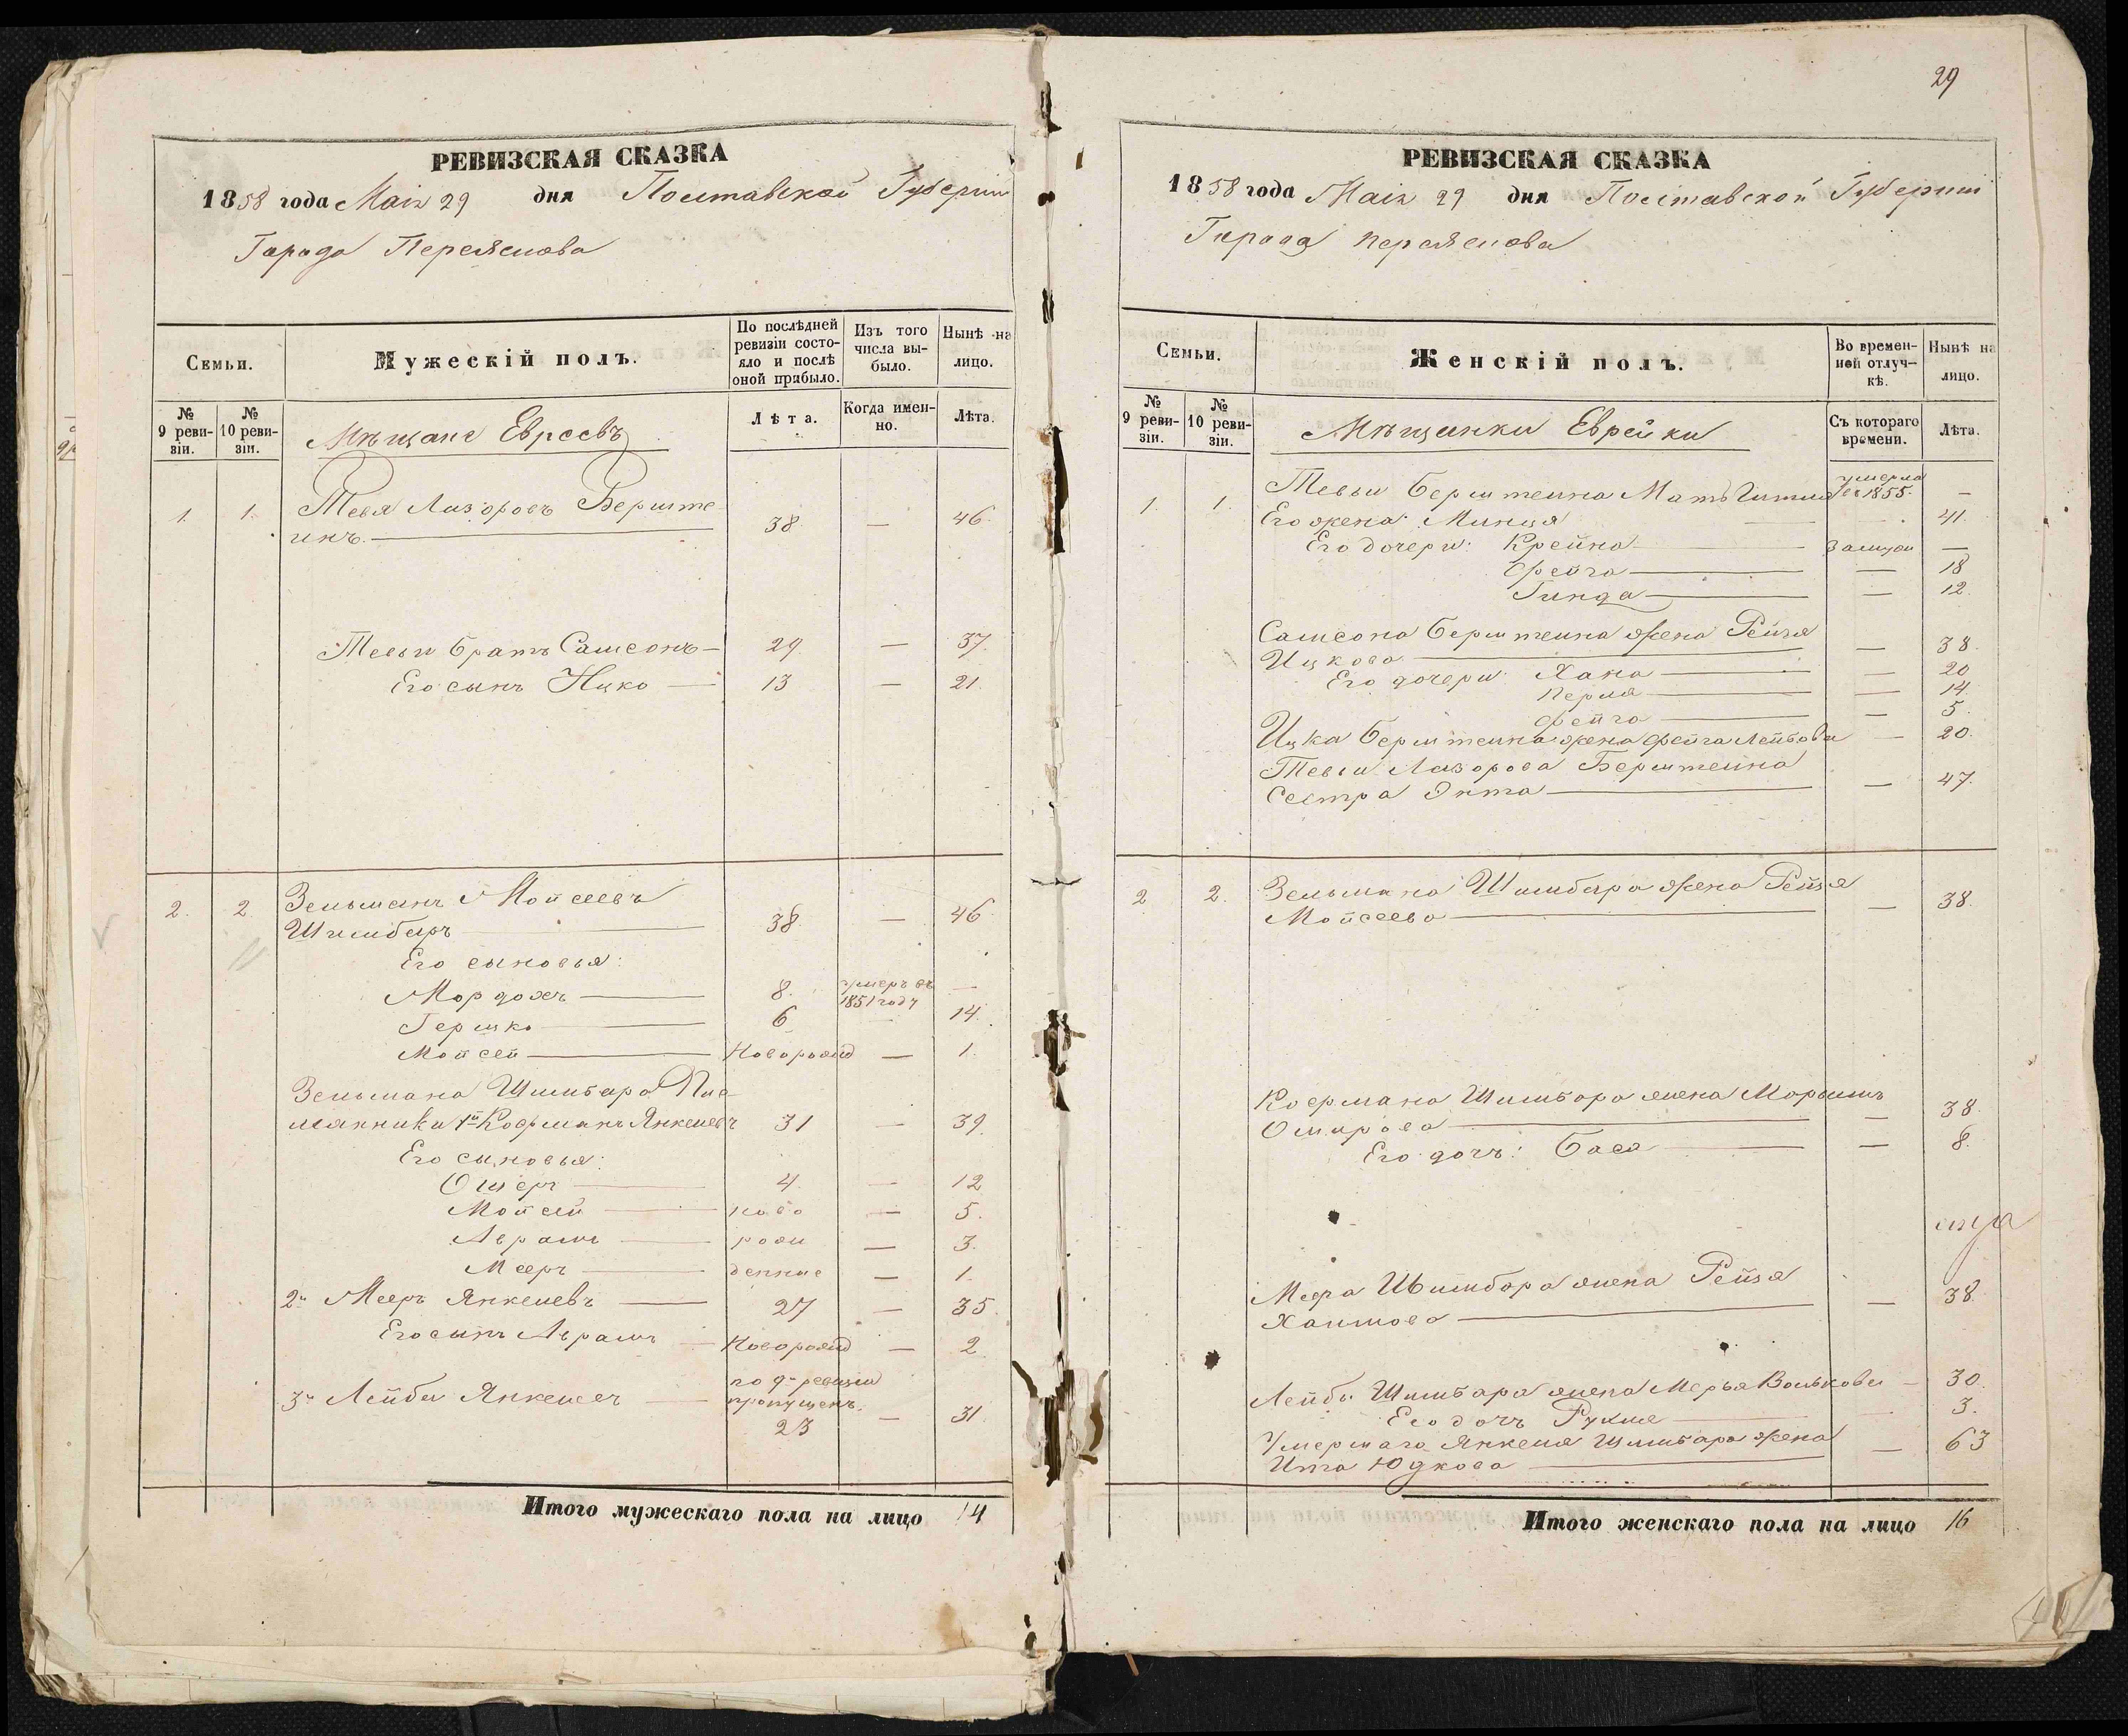 РЕВИЗСКАЯ СКАЗКА
1858 года Маія 29 дня Полтавской Губерніи
Города Переяслова
Семьи.
Мужескій полъ.
По послѣдней ревизіи состо-
яло и послѣ оной прибыло.
Изъ того числа вы-
было.
Нынѣ на лицо.
№ 9 реви-
зіи.
№ 10 реви-
зіи.
Мѣщане Евреевъ
Лѣта.
Когда имен-
но.
Лѣта.
1. 1. Тевя Лизоровъ Берште-
инъ. 38 — 46.
Тевьи братъ Самсонъ 29. — 37.
Его сынъ Ицко 13 — 21.
2. 2. Зельманъ Мойсеевъ
Шимберъ 38. — 46
Его сыновья:
Мордохъ 8. умеръ въ 1851 году —
Гершко 6 14.
Мойсей Новорожд — 1.
Зельмана Шимбара Пле-
мянники 1й Кофманъ Янкелевъ 31 — 39.
Его сыновья:
Ошеръ 4. — 12
Мойсей ново — 5.
Аврамъ рож — 3.
Мееръ денные — 1.
2й Мееръ Янкелевъ 27 — 35.
Его сынъ Аврамъ Новорожд — 2
3й Лейба Янкелев по 9й ревизіи
пропущенъ.
23 — 31.
Итого мужескаго пола на лицо 14
29
РЕВИЗСКАЯ СКАЗКА
1858 года Маія 29 дня Полтавской Губерніи
Города Переяслова
Семьи.
Женскій полъ.
Во времен-
ной отлуч-
кѣ.
Нынѣ на лицо.
№ 9 реви-
зіи.
№ 10 реви-
зіи.
Мѣщанки Еврейки
Съ котораго времени.
Лѣта.
1. 1. Тевьи Берштеина Мать умерла 1855. —
Его жена Минця 41.
Его дочери: Крейна —
Фейга — 18
Гинда — 12.
Самсона Берштеина жена Рейзя
Ицкова — 38.
Его дочери: Хана — 20
Перля — 14.
Фейга — 5.
Ицка Берштеина жена Фейга Лейбова — 20.
Тевьи Лазорова Берштеина
Сестра — 47.
2 2. Зельмана Шимбара жена Рейзя
Мойсеева — 38.
Кофмана Шимбара жена
Ошарова — 38.
Его дочь: Бася — 8.
Меера Шимбара жена Рейзя
Хаимова — 38.
Лейбы Шимбара жена Мерья Волькова — 30.
Его дочь 3.
Умершаго Янкеля Шимбара жена
Ита Юдкова — 63
Итого женскаго пола на лицо 16